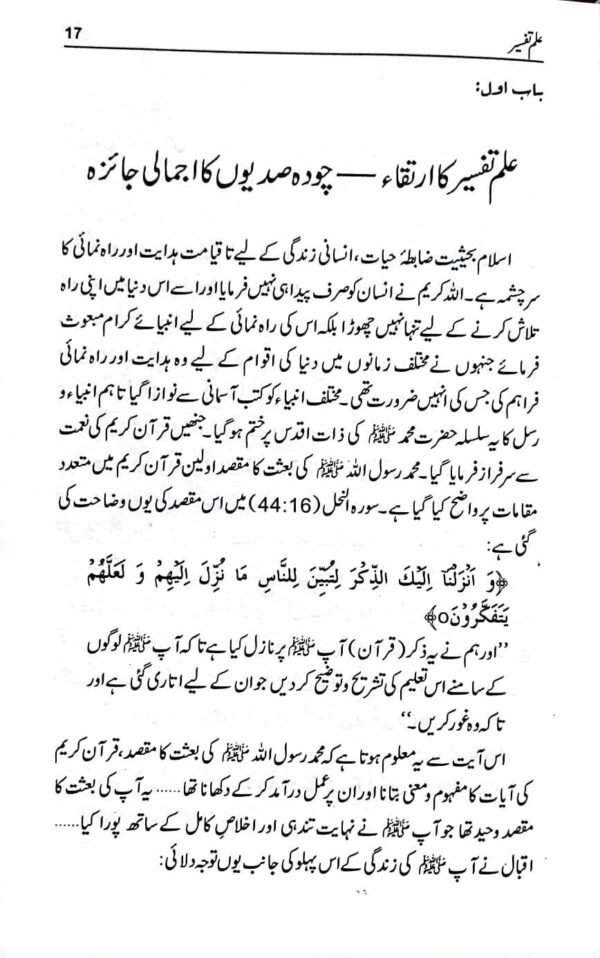 علم تفسیر 17
باب اول:
علم تفسیر کا ارتقاء — چودہ صدیوں کا اجمالی جائزہ
اسلام بحیثیت ضابطۂ حیات، انسانی زندگی کے لیے تا قیامت ہدایت اور راہ نمائی کا
سرچشمہ ہے۔ اللہ کریم نے انسان کو صرف پیدا ہی نہیں فرمایا اور اسے اس دنیا میں اپنی راہ
تلاش کرنے کے لیے تنہا نہیں چھوڑا بلکہ اس کی راہ نمائی کے لیے انبیائے کرام مبعوث
فرمائے جنہوں نے مختلف زمانوں میں دنیا کی اقوام کے لیے وہ ہدایت اور راہ نمائی
فراہم کی جس کی انہیں ضرورت تھی۔ مختلف انبیاء کو کتب آسمانی سے نوازا گیا تاہم انبیاء و
رسل کا یہ سلسلہ حضرت محمد ﷺ کی ذات اقدس پر ختم ہو گیا۔ جنھیں قرآن کریم کی نعمت
سے سرفراز فرمایا گیا۔ محمد رسول اللہ ﷺ کی بعثت کا مقصد اولین قرآن کریم میں متعدد
مقامات پر واضح کیا گیا ہے۔ سورہ النحل (44:16) میں اس مقصد کی یوں وضاحت کی
گئی ہے:
﴿وَ اَنْزَلْنَآ اِلَيْكَ الذِّكْرَ لِتُبَيِّنَ لِلنَّاسِ مَا نُزِّلَ اِلَيْهِمْ وَ لَعَلَّهُمْ
يَتَفَكَّرُوْنَo﴾
”اور ہم نے یہ ذکر (قرآن) آپ ﷺ پر نازل کیا ہے تاکہ آپ ﷺ لوگوں
کے سامنے اس تعلیم کی تشریح و توضیح کر دیں جو ان کے لیے اتاری گئی ہے اور
تاکہ وہ غور کریں۔“
اس آیت سے یہ معلوم ہوتا ہے کہ محمد رسول اللہ ﷺ کی بعثت کا مقصد، قرآن کریم
کی آیات کا مفہوم و معنی بتانا اور ان پر عمل درآمد کر کے دکھانا تھا ...... یہ آپ کی بعثت کا
مقصد وحید تھا جو آپ ﷺ نے نہایت تندہی اور اخلاص کامل کے ساتھ پورا کیا ......
اقبال نے آپ ﷺ کی زندگی کے اس پہلو کی جانب یوں توجہ دلائی: